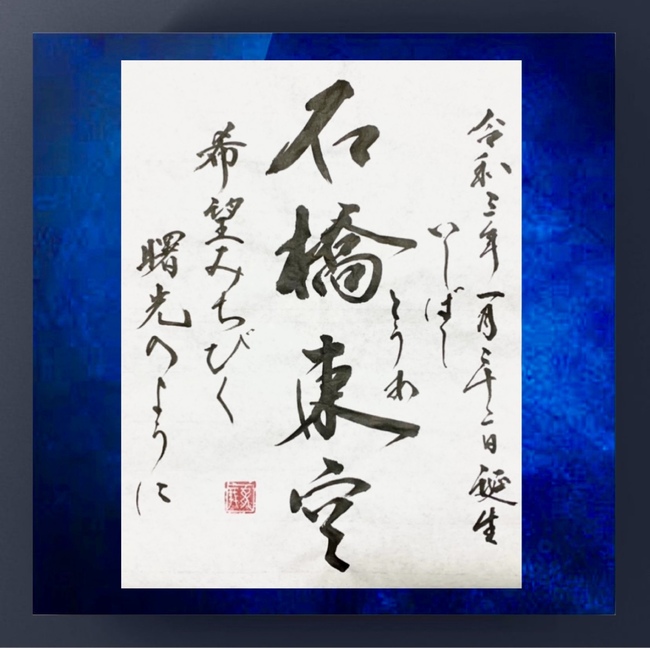 令和三年一月三十一日誕生
いしばし
とうわ
石橋東空
希望みちびく
曙光のように